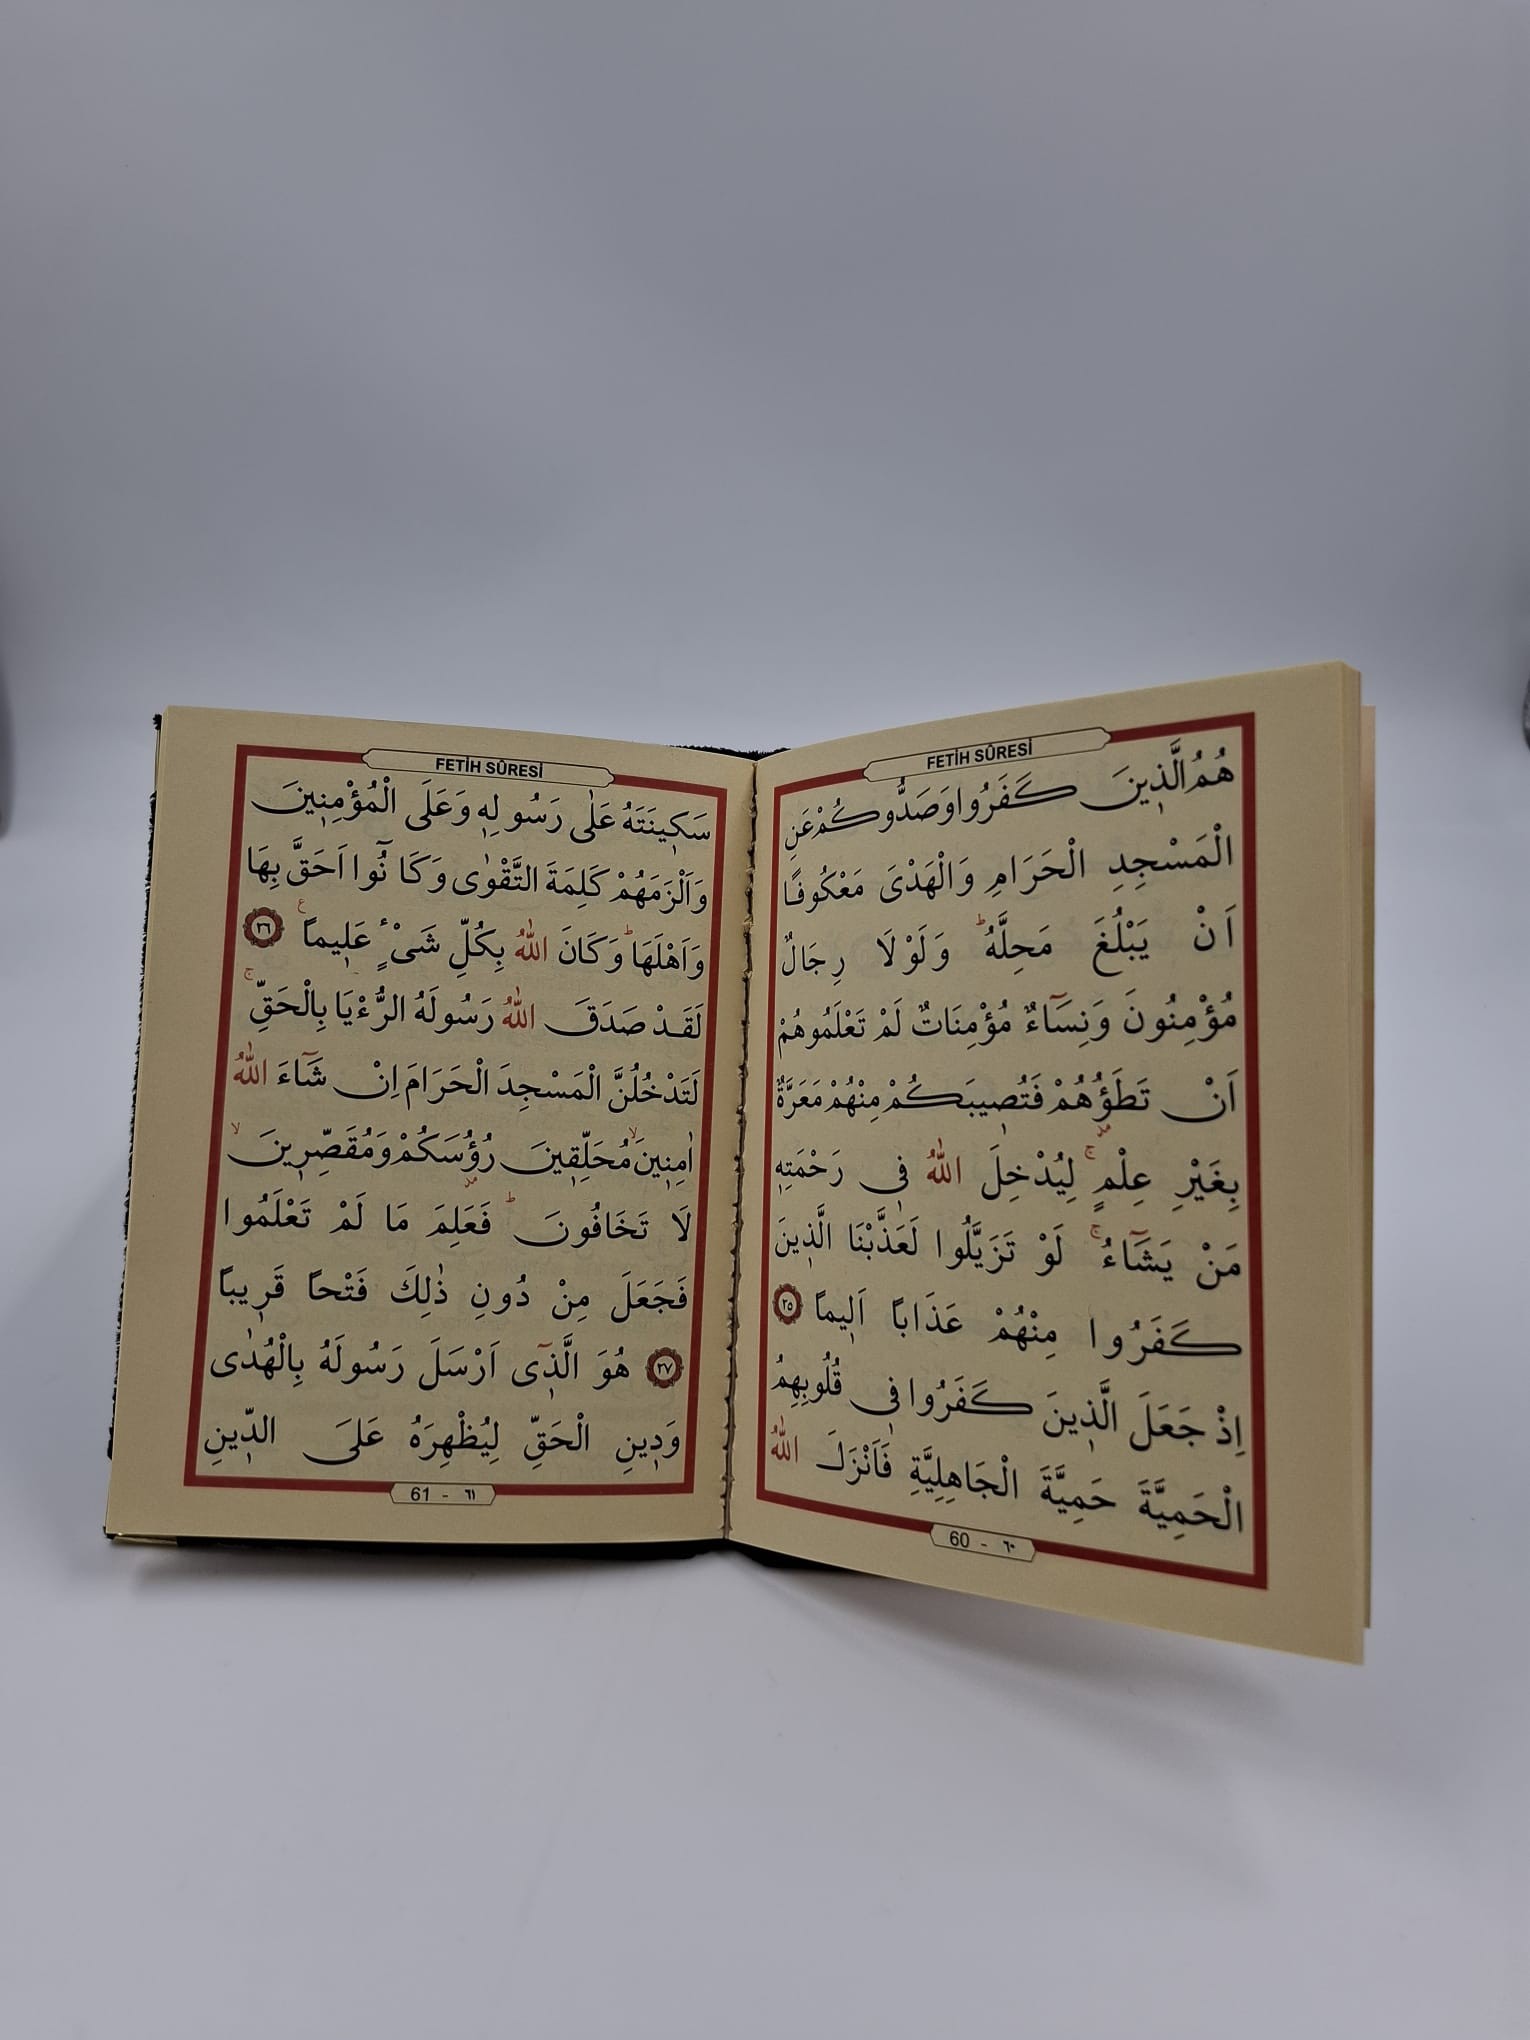 FETİH SÛRESİ
هُمُ الَّذ۪ينَ كَفَرُوا وَصَدُّوكُمْ عَنِ
الْمَسْجِدِ الْحَرَامِ وَالْهَدْىَ مَعْكُوفًا
اَنْ يَبْلُغَ مَحِلَّهُۜ وَلَوْلَا رِجَالٌ
مُؤْمِنُونَ وَنِسَٓاءٌ مُؤْمِنَاتٌ لَمْ تَعْلَمُوهُمْ
اَنْ تَطَؤُ۫هُمْ فَتُص۪يبَكُمْ مِنْهُمْ مَعَرَّةٌ
بِغَيْرِ عِلْمٍۚ لِيُدْخِلَ اللّٰهُ ف۪ي رَحْمَتِه۪
مَنْ يَشَٓاءُۚ لَوْ تَزَيَّلُوا لَعَذَّبْنَا الَّذ۪ينَ
كَفَرُوا مِنْهُمْ عَذَاباً اَل۪يماً ٢٥
اِذْ جَعَلَ الَّذ۪ينَ كَفَرُوا ف۪ي قُلُوبِهِمُ
الْحَمِيَّةَ حَمِيَّةَ الْجَاهِلِيَّةِ فَاَنْزَلَ اللّٰهُ
60 - ٦٠
FETİH SÛRESİ
سَك۪ينَتَهُ عَلٰى رَسُولِه۪ وَعَلَى الْمُؤْمِن۪ينَ
وَاَلْزَمَهُمْ كَلِمَةَ التَّقْوٰى وَكَانُٓوا اَحَقَّ بِهَا
وَاَهْلَهَاۜ وَكَانَ اللّٰهُ بِكُلِّ شَىْءٍ عَل۪يماً۟ ٢٦
لَقَدْ صَدَقَ اللّٰهُ رَسُولَهُ الرُّءْيَا بِالْحَقِّۚ
لَتَدْخُلُنَّ الْمَسْجِدَ الْحَرَامَ اِنْ شَٓاءَ اللّٰهُ
اٰمِن۪ينَۙ مُحَلِّق۪ينَ رُؤُ۫سَكُمْ وَمُقَصِّر۪ينَۙ
لَا تَخَافُونَۜ فَعَلِمَ مَا لَمْ تَعْلَمُوا
فَجَعَلَ مِنْ دُونِ ذٰلِكَ فَتْحاً قَر۪يباً
٢٧ هُوَ الَّذ۪ٓى اَرْسَلَ رَسُولَهُ بِالْهُدٰى
وَد۪ينِ الْحَقِّ لِيُظْهِرَهُ عَلَى الدّ۪ينِ
61 - ٦١